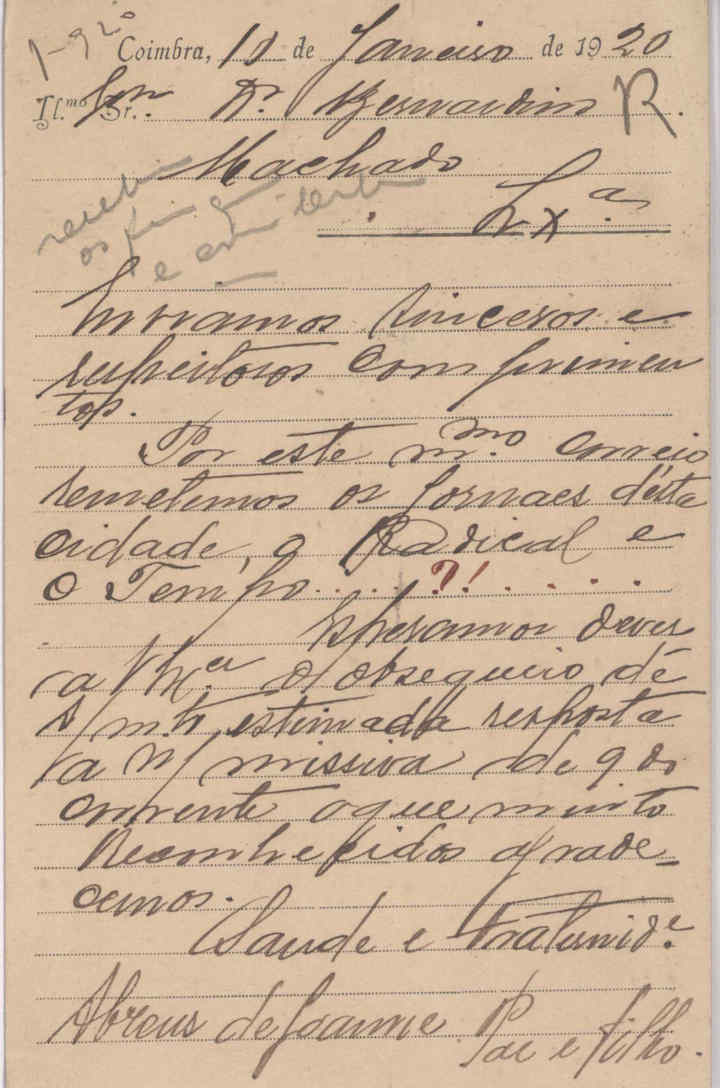 1-920
Coimbra, 18 de Janeiro de 1920
Il.mo Exmo Sr. Dr. Bernardino R.
Machado
Lxa
receb
os
e
Enviamos sinceros e
respeitosos comprimen
tos.
Por este m.mo correio
remetemos os jornaes désta
cidade, o Radical e
O Tempo.....?!......
Esperamos dever
a V. Exa o obsequio de
s/ m.to estimada resposta
a n/ missiva de 9 do
corrente o que muito
reconhecidos agrade-
cemos.
Saude e Fraternide.
Abreus de
Pae e filho.